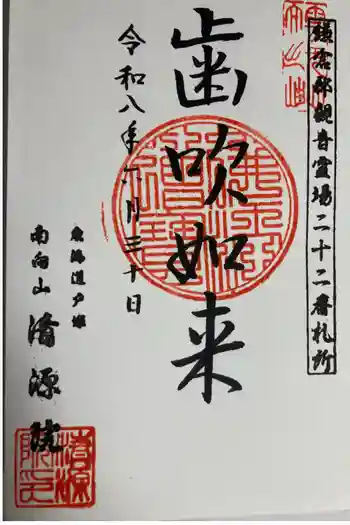 鎌倉郡観音霊場二十二番札所
歯吹如来
令和八年六月三十日
東海道戸塚
南向山
清源院
清源院印